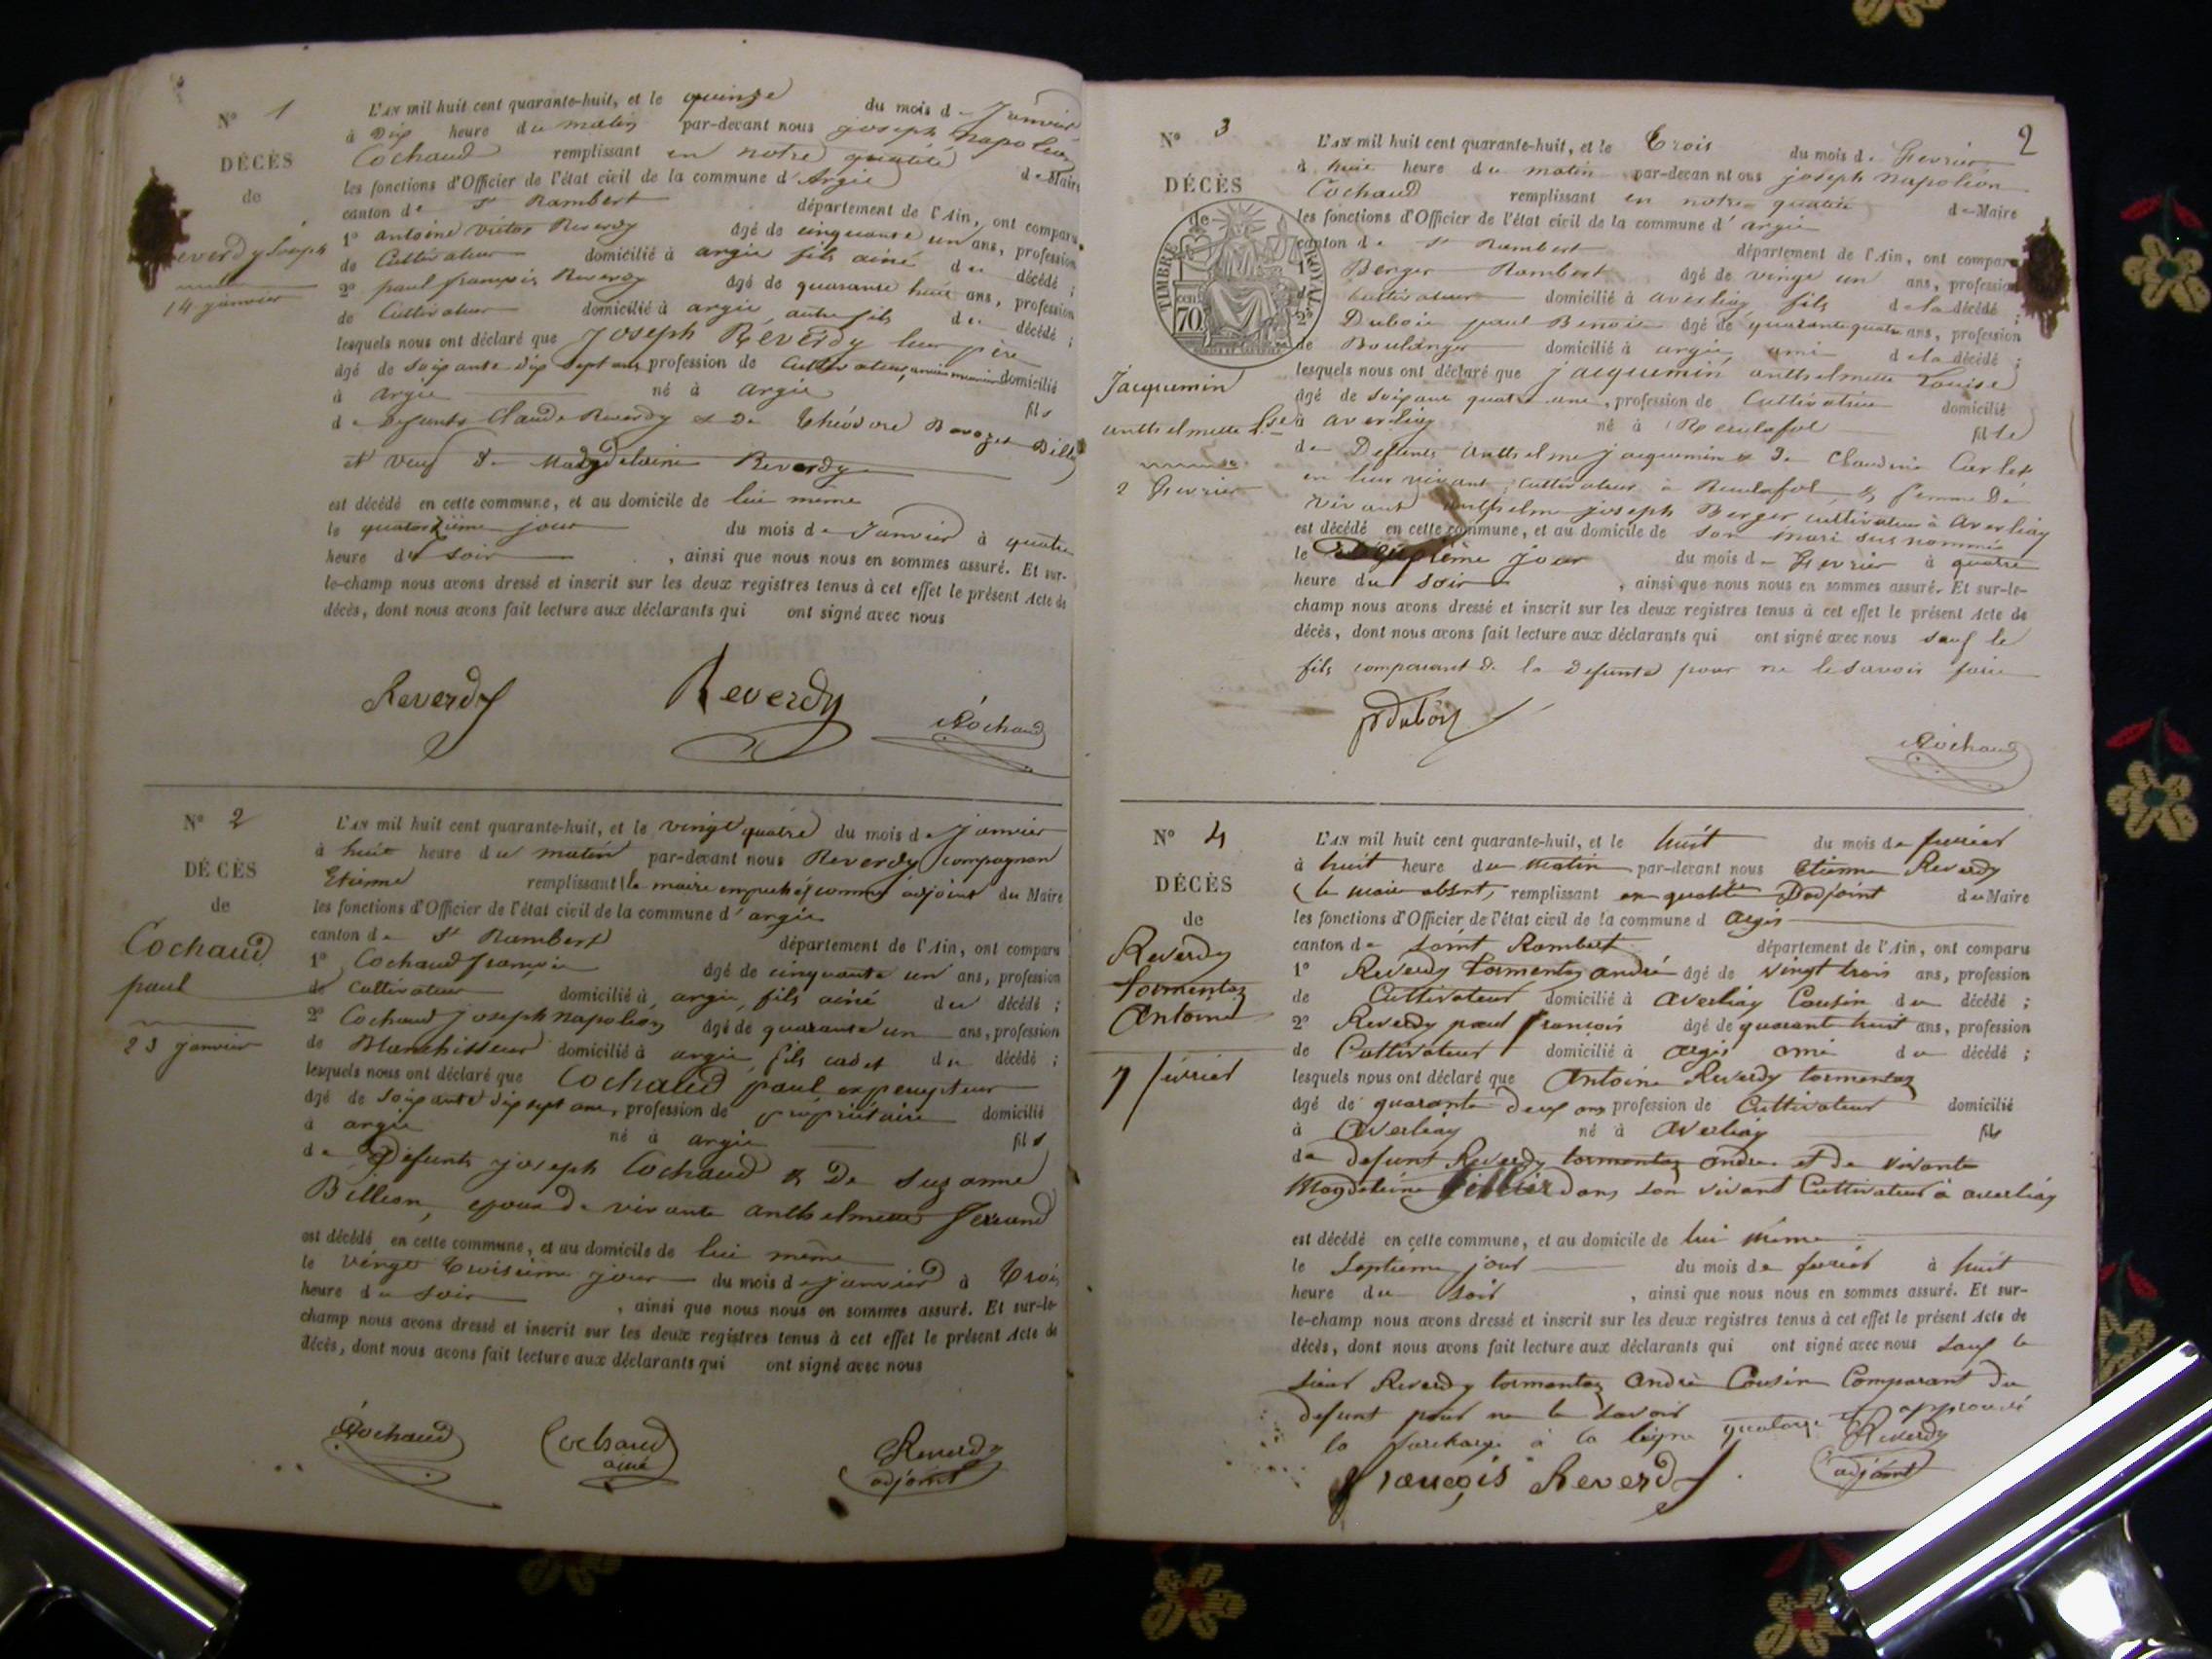 N° 1
DÉCÈS
de
Reverdy Joseph
14 janvier
L'AN mil huit cent quarante-huit, et le quinze du mois de Janvier
à Dix heure du matin par-devant nous joseph napoléon
Cochaud remplissant en notre qualité de Maire
les fonctions d'Officier de l'état civil de la commune d'Argis
canton de St Rambert département de l'Ain, ont comparu
1° antoine victor Reverdy âgé de cinquante un ans, profession
de Cultivateur domicilié à argis fils ainé du décédé ;
2° paul françois Reverdy âgé de quarante huit ans, profession
de Cultivateur domicilié à argis, autre fils du décédé ;
lesquels nous ont déclaré que Joseph Reverdy leur père
âgé de soixante dix sept ans, profession de Cultivateur, domicilié
à argis né à argis fils
de Defunts Claude Reverdy et De Théodore
et veuf de Magdelaine Reverdy
est décédé en cette commune, et au domicile de lui même
le quatorzième jour du mois de Janvier à quatre
heure du soir , ainsi que nous nous en sommes assuré. Et sur-
le-champ nous avons dressé et inscrit sur les deux registres tenus à cet effet le présent Acte de
décès, dont nous avons fait lecture aux déclarants qui ont signé avec nous
Reverdy Reverdy Cochaud
N° 2
DÉCÈS
de
Cochaud
paul
23 janvier
L'AN mil huit cent quarante-huit, et le vingt quatre du mois de Janvier
à huit heure du matin par-devant nous Reverdy compagnon
Etienne remplissant (le maire empeché) comme adjoint du Maire
les fonctions d'Officier de l'état civil de la commune d'argis
canton de St Rambert département de l'Ain, ont comparu
1° Cochaud françois âgé de cinquante un ans, profession
de cultivateur domicilié à argis, fils ainé du décédé ;
2° Cochaud joseph napoléon âgé de quarante un ans, profession
de Blanchisseur domicilié à argis, fils cadet du décédé ;
lesquels nous ont déclaré que Cochaud paul expercepteur
âgé de soixante dix sept ans, profession de propriétaire domicilié
à argis né à argis fils
de Défunts joseph Cochaud & De Suzanne
Billion, epoux de vivante anthelmette Ferrand
est décédé en cette commune, et au domicile de lui même
le vingt troisième jour du mois de janvier à Trois
heure du soir , ainsi que nous nous en sommes assuré. Et sur-le-
champ nous avons dressé et inscrit sur les deux registres tenus à cet effet le présent Acte de
décès, dont nous avons fait lecture aux déclarants qui ont signé avec nous
Cochaud Cochaud ainé Reverdy adjoint
2
N° 3
DÉCÈS
de
TIMBRE ROYAL
70
Jacquemin
anthelmette Lse
2 Fevrier
L'AN mil huit cent quarante-huit, et le Trois du mois de Fevrier
à huit heure du matin par-devan nt ous joseph napoléon
Cochaud remplissant en notre qualité de Maire
les fonctions d'Officier de l'état civil de la commune d'argis
canton de St Rambert département de l'Ain, ont comparu
1° Berger Rambert âgé de vingt un ans, profession
cultivateur domicilié à averliaz fils de la décédé ;
2° Dubois paul Benoit âgé de quarante quatre ans, profession
de Boulanger domicilié à argis, ami de la décédé ;
lesquels nous ont déclaré que jacquemin anthelmette Louise
âgé de soixante quatre ans, profession de Cultivatrice domicilié
à averliaz né à fille
de Defunts anthelme jacquemin & De Claudine
en leur vivant, cultivateur à & femme De
vivant anthelme joseph Berger cultivateur à averliaz
est décédé en cette commune, et au domicile de son mari sus nommé
le Deuxième jour du mois de Fevrier à quatre
heure du soir , ainsi que nous nous en sommes assuré. Et sur-le-
champ nous avons dressé et inscrit sur les deux registres tenus à cet effet le présent Acte de
décès, dont nous avons fait lecture aux déclarants qui ont signé avec nous sauf le
fils comparant de la Defunte pour ne le savoir faire
Dubois Cochaud
N° 4
DÉCÈS
de
Reverdy
tormentaz
Antoine
7 février
L'AN mil huit cent quarante-huit, et le huit du mois de fevrier
à huit heure du matin par-devant nous Etienne Reverdy
(le maire absent) remplissant en qualité D'adjoint du Maire
les fonctions d'Officier de l'état civil de la commune d argis
canton de saint Rambert département de l'Ain, ont comparu
1° Reverdy tormentaz andré âgé de vingt trois ans, profession
de Cultivateur domicilié à averliaz Cousin du décédé ;
2° Reverdy paul françois âgé de quarante huit ans, profession
de Cultivateur domicilié à argis ami du décédé ;
lesquels nous ont déclaré que Antoine Reverdy tormentaz
âgé de quarante deux ans profession de Cultivateur domicilié
à averliaz né à averliaz fils
de defunt Reverdy tormentaz andré et de vivante
Magdeleine dans son vivant Cultivateur à averliaz
est décédé en cette commune, et au domicile de lui même
le Septième jour du mois de fevrier à huit
heure du soir , ainsi que nous nous en sommes assuré. Et sur-
le-champ nous avons dressé et inscrit sur les deux registres tenus à cet effet le présent Acte de
décès, dont nous avons fait lecture aux déclarants qui ont signé avec nous sauf le
sieur Reverdy tormentaz andré Cousin Comparant du
defunt pour ne le savoir
la surcharge à la ligne quatorze est approuvé
françois Reverdy Reverdy adjoint